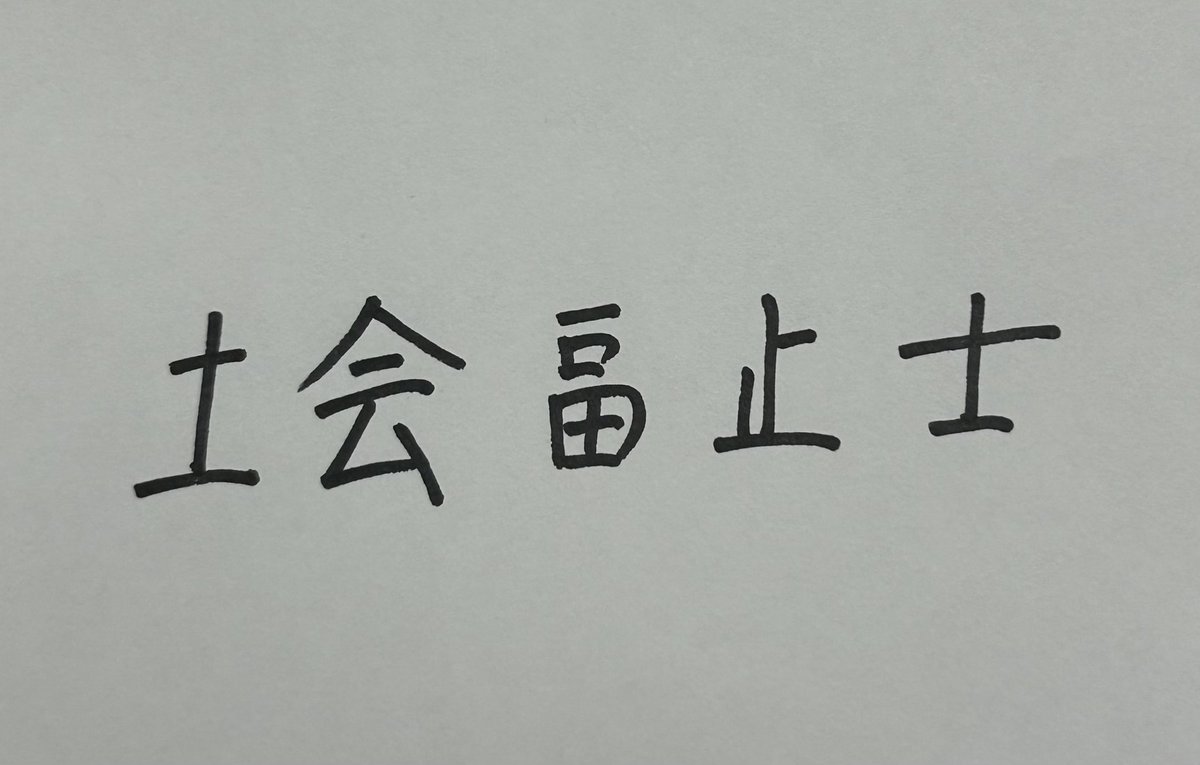 土会畐止士